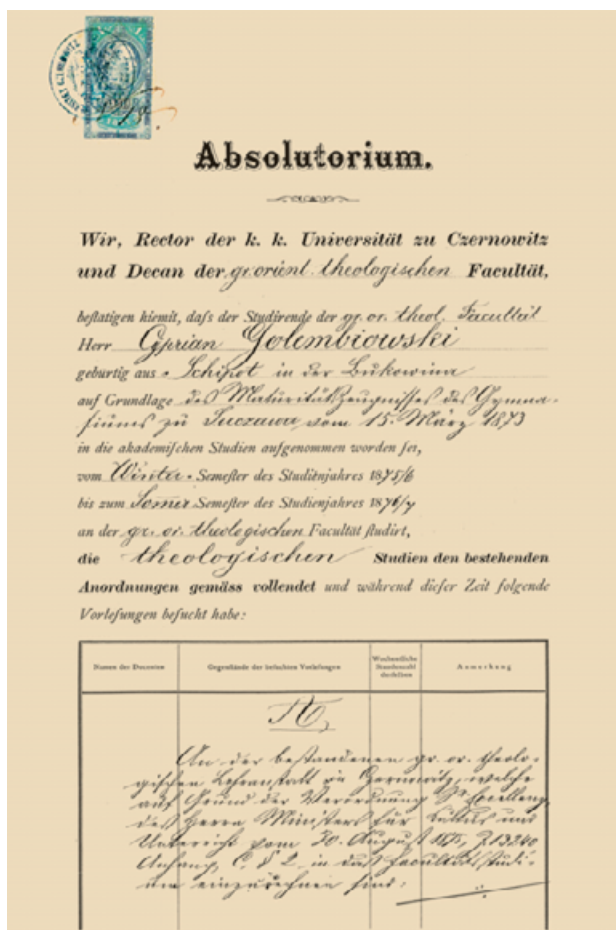 Absolutorium.
Wir, Rector der k. k. Universität zu Czernowitz
und Decan der gr. orient. theologischen Facultät,
beſtatigen hiemit, daſs der Studirende der gr. or. theol. Facultät
Herr Cyprian Golembiowski
geburtig aus Schipot in der Bukowina
auf Grundlage des Maturitätszeugnisses des Gymna-
siums zu Suczawa vom 15. März 1873
in die akademiſchen Studien aufgenommen worden ſei,
vom Winter-Semeſter des Studienjahres 1875/6
bis zum Somer-Semeſter des Studienjahres 1876/7
an der gr. or. theologischen Facultät ſtudirt,
die theologischen Studien den bestehenden
Anordnungen gemäss vollendet und während dieſer Zeit folgende
Vorleſungen beſucht habe:
Namen der Docenten
Gegenſtände der beſuchten Vorleſungen
Wochentliche Stundenzahl derſelben
Anmerkung
An der bestandenen gr. or. theolo-
gischen Lehranstalt in Czernowitz, welche
auf Grund der Verordnung Sr Excellenz
des Herrn Ministers für Cultus und
Unterricht vom 30. August Z. 13240
Anhang, C. § 2. in das Facultätsstudi-
um einzurechnen sind: